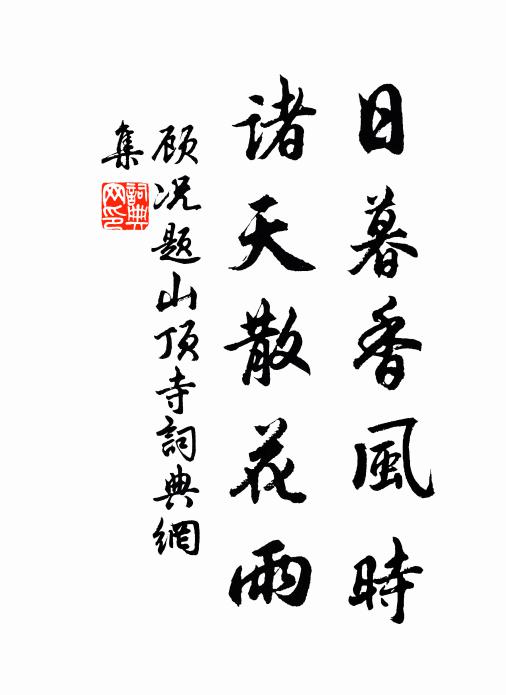 日暮香風時
诸天散花雨
顾况题山顶寺詞典網
集
詞典
网印